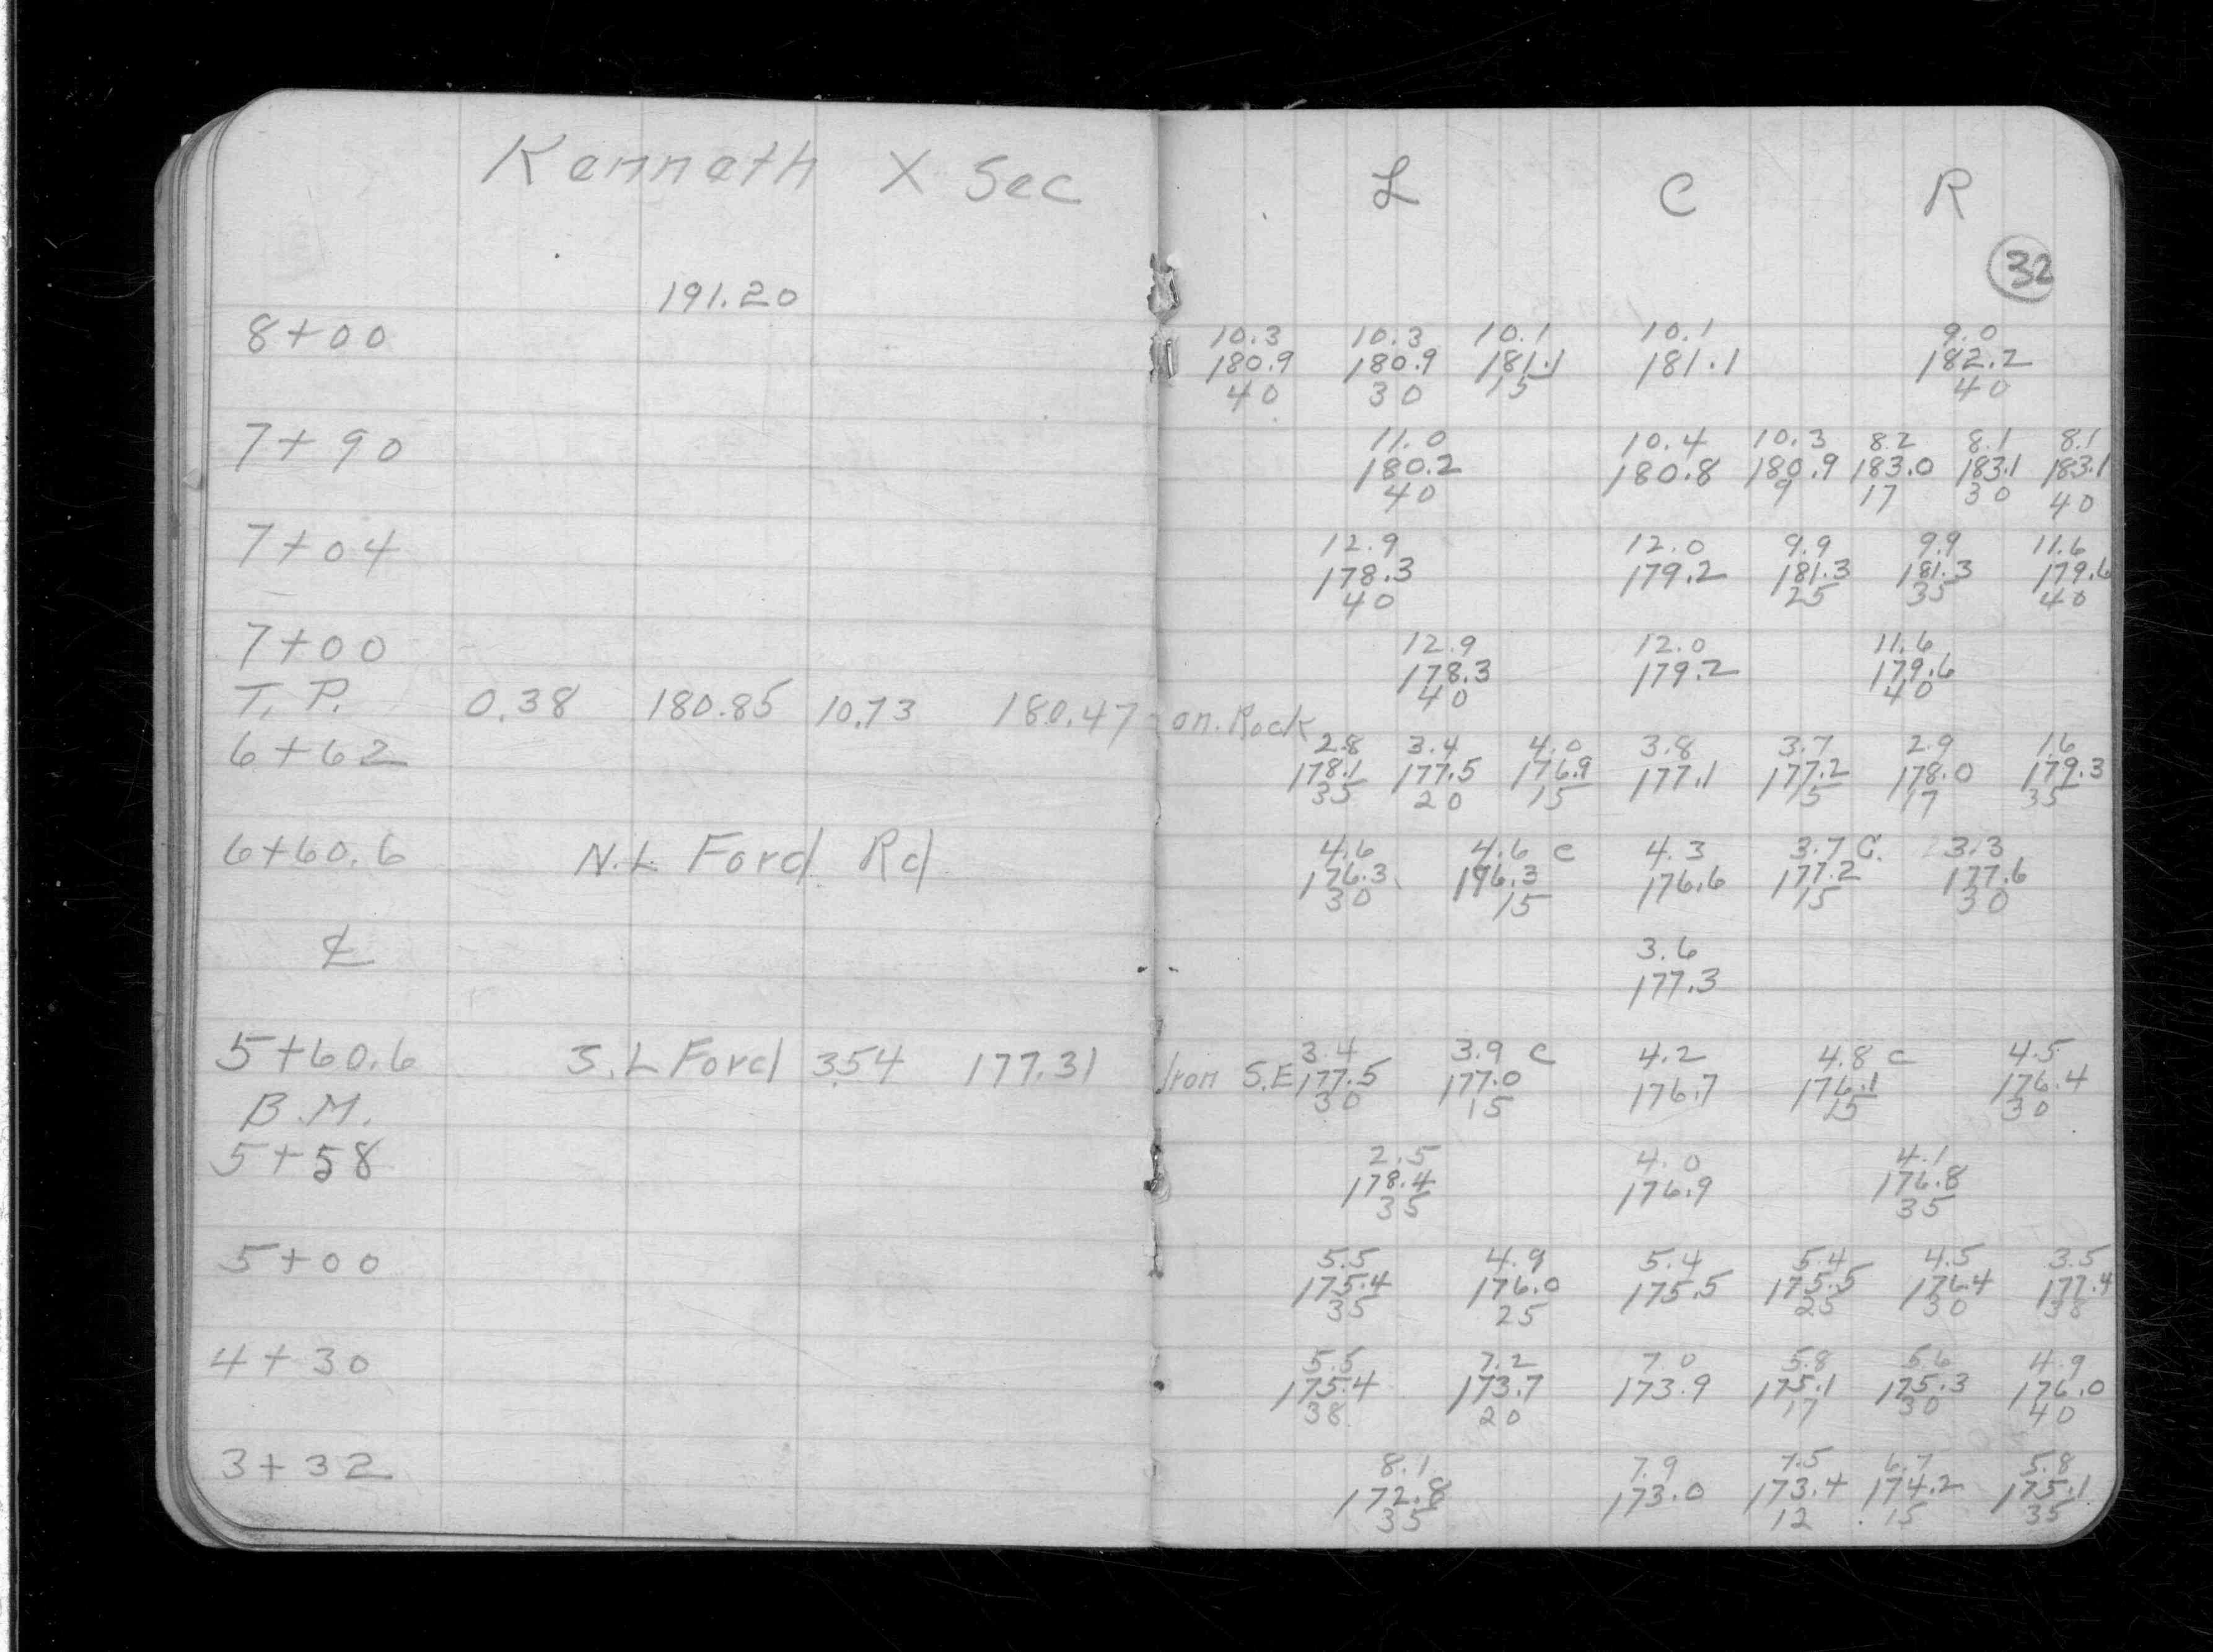 Kenneth X Sec L C R
32
191.20
8+00 10.3 10.3 10.1 10.1 9.0
180.9 180.9 181.1 181.1 182.2
40 30 15 40
7+90 11.0 10.4 10.3 8.2 8.1 8.1
180.2 180.8 180.9 183.0 183.1 183.1
40 9 17 30 40
7+04 12.9 12.0 9.9 9.9 11.6
178.3 179.2 181.3 181.3 179.6
40 25 35 40
7+00 12.9 12.0 11.6
178.3 179.2 179.6
40 40
T.P. 0.38 180.85 10.73 180.47 on. Rock
6+62 2.8 3.4 4.0 3.8 3.7 2.9 1.6
178.1 177.5 176.9 177.1 177.2 178.0 179.3
35 20 15 15 17 35
6+60.6 N.L. Ford Rd 4.6 4.6 c 4.3 3.7 C. 3.3
176.3 176.3 176.6 177.2 177.6
30 15 15 30
℄ 3.6
177.3
5+60.6 S.L Ford 3.54 177.31 Iron S.E 3.4 3.9 c 4.2 4.8 c 4.5
177.5 177.0 176.7 176.1 176.4
30 15 15 30
B.M.
5+58 2.5 4.0 4.1
178.4 176.9 176.8
35 35
5+00 5.5 4.9 5.4 5.4 4.5 3.5
175.4 176.0 175.5 175.5 176.4 177.4
35 25 25 30 38
4+30 5.5 7.2 7.0 5.8 5.6 4.9
175.4 173.7 173.9 175.1 175.3 176.0
38 20 17 30 40
3+32 8.1 7.9 7.5 6.7 5.8
172.8 173.0 173.4 174.2 175.1
35 12 15 35